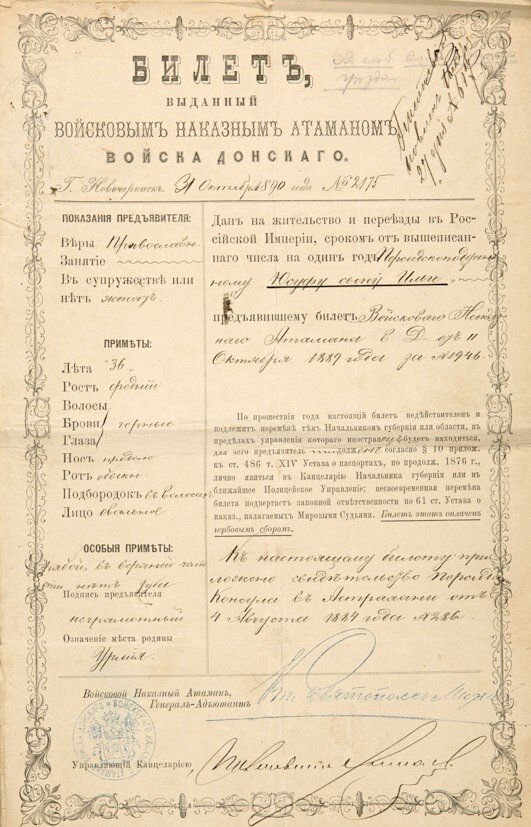 БИЛЕТЪ,
ВЫДАННЫЙ
ВОЙСКОВЫМЪ НАКАЗНЫМЪ АТАМАНОМЪ
ВОЙСКА ДОНСКАГО.
27 № 617
Г. Новочеркаскъ. 31 Октября 1890 года № 2175
ПОКАЗАНІЯ ПРЕДЪЯВИТЕЛЯ:
Вѣры Православн.
Занятіе
Въ супружествѣ или
нѣтъ женатъ
ПРИМѢТЫ:
Лѣта "36"
Ростъ средній
Волосы
Брови черные
Глаза
Носъ прямой
Ротъ обыкн
Подбородокъ
Лицо овальное
ОСОБЫЯ ПРИМѢТЫ:
въ верхней
нѣтъ зуба
Подпись предъявителя
неграмотный
Означеніе мѣста родины
Урмія
Данъ на жительство и переѣзды въ Рос-
сійской Имперіи, срокомъ отъ вышеписан-
наго числа на одинъ годъ Персидскоподдан-
ному Юсуфу сыну
предъявившему билетъ Войсковаго Наказ-
наго Атамана В. Д. отъ 11
Октября 1889 года за № 1946.
По прошествіи года настоящій билетъ недѣйствителенъ и
подлежитъ перемѣнѣ тѣмъ Начальникомъ губерніи или области, въ
предѣлахъ управленія котораго иностранецъ будетъ находиться,
для чего предъявитель долженъ согласно § 10 прилож.
къ ст. 486 т. XIV Устава о паспортахъ, по продолж. 1876 г.,
лично явиться въ Канцелярію Начальника губерніи или въ
ближайшее Полицейское Управленіе; несвоевременная перемѣна
билета подвергаетъ законной отвѣтственности по 61 ст. Устава о
наказ., налагаемыхъ Мировыми Судьями. Билетъ этотъ оплаченъ
гербовымъ сборомъ.
Къ настоящему билету при-
ложено свидѣтельство Персидск.
Консула въ Астрахани отъ
4 Августа 1884 года № 286.
Войсковой Наказный Атаманъ,
Генералъ-Адъютантъ Кн. Святополкъ Мирскій
Управляющій Канцеляріею,